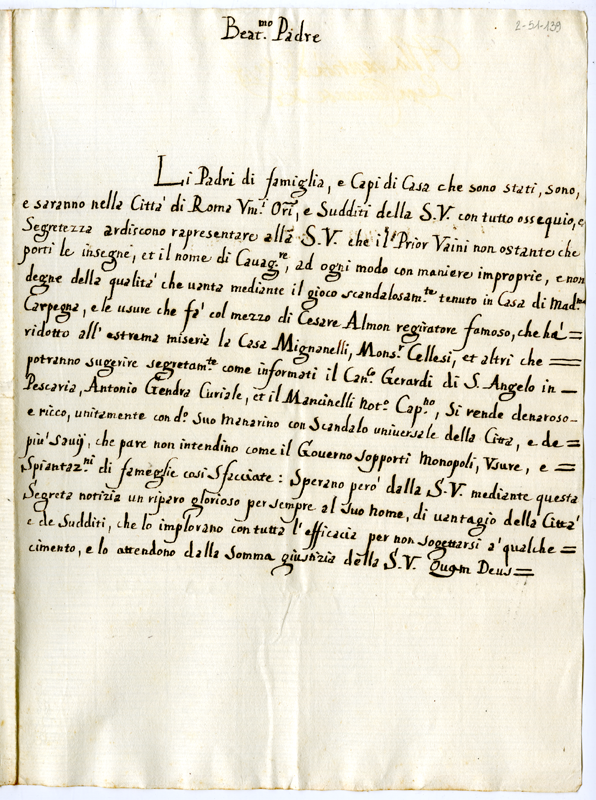 2-51-139
Beat.mo Padre
Li Padri di famiglia, e Capi di Casa che sono stati, sono,
e saranno nella Città di Roma Vm.i Ori, e Sudditi della S.V. con tutto ossequio, e
Segretezza ardiscono rapresentare alla S.V. che il Prior Vaini non ostante che
porti le insegne, et il nome di Cavag.re, ad ogni modo con maniere improprie, e non
degne della qualità che uanta mediante il gioco scandalosam.te tenuto in Casa di Mad.ma
Carpegna, e le usure che fà col mezzo di Cesare Almon regiratore famoso, che hà =
ridotto all' estrema miseria la Casa Mignanelli, Mons.r Cellesi, et altri che =
potranno sugerire segretam.te come informati il Can.co Gerardi di S. Angelo in _
Pescaria, Antonio Gendra Curiale, et il Mancinelli Not.o Cap.no, Si rende denaroso _
e ricco, unitamente con d.o suo Manarino con Scandalo uniuersale della Città, e de =
più Sauij, che pare non intendino come il Gouerno sopporti Monopoli, Vsure, e =
Spiantaz.ni di fameglie così Sfacciate : Sperano però dalla S.V. mediante questa
Segreta notizia un riparo glorioso per sempre al suo nome, di uantagio della Città
e de Sudditi, che lo implorano con tutta l' efficacia per non sogettarsi a' qualche =
cimento, e lo attendono dalla somma giustizia della S.V. Quam Deus =